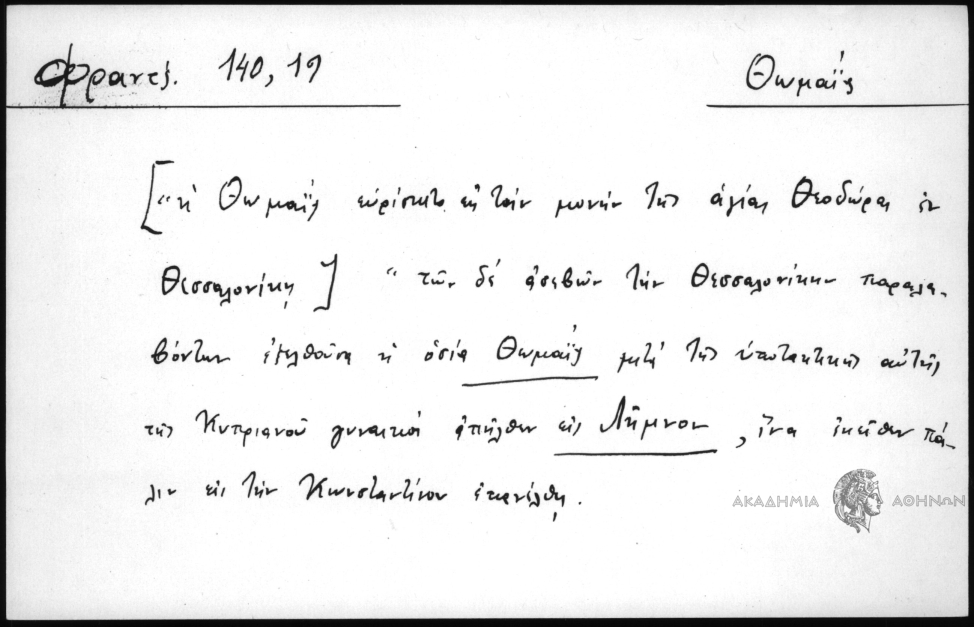 Φραντζ. 140, 19
Θωμαΐς
["ἡ Θωμαΐς εὑρίσκετο εἰς τὴν μονὴν τῆς ἁγίας Θεοδώρας ἐν
Θεσσαλονίκῃ] "τῶν δέ ἀσεβῶν τὴν Θεσσαλονίκην παραλα-
βόντων ἐξελθοῦσα ἡ ὁσία Θωμαΐς μετά τῆς ὑποτακτικῆς αὐτῆς
τῆς Κυπριανοῦ γυναικός ἀπῆλθεν εἰς Λῆμνον, ἵνα ἐκεῖθεν πά-
λιν εἰς τὴν Κωνσταντίνου ἐπανέλθῃ.
ΑΚΑΔΗΜΙΑ ΑΘΗΝΩΝ